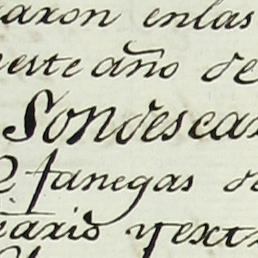 aron enlas
este año de
Sondescar
fanegas de
ario y ext